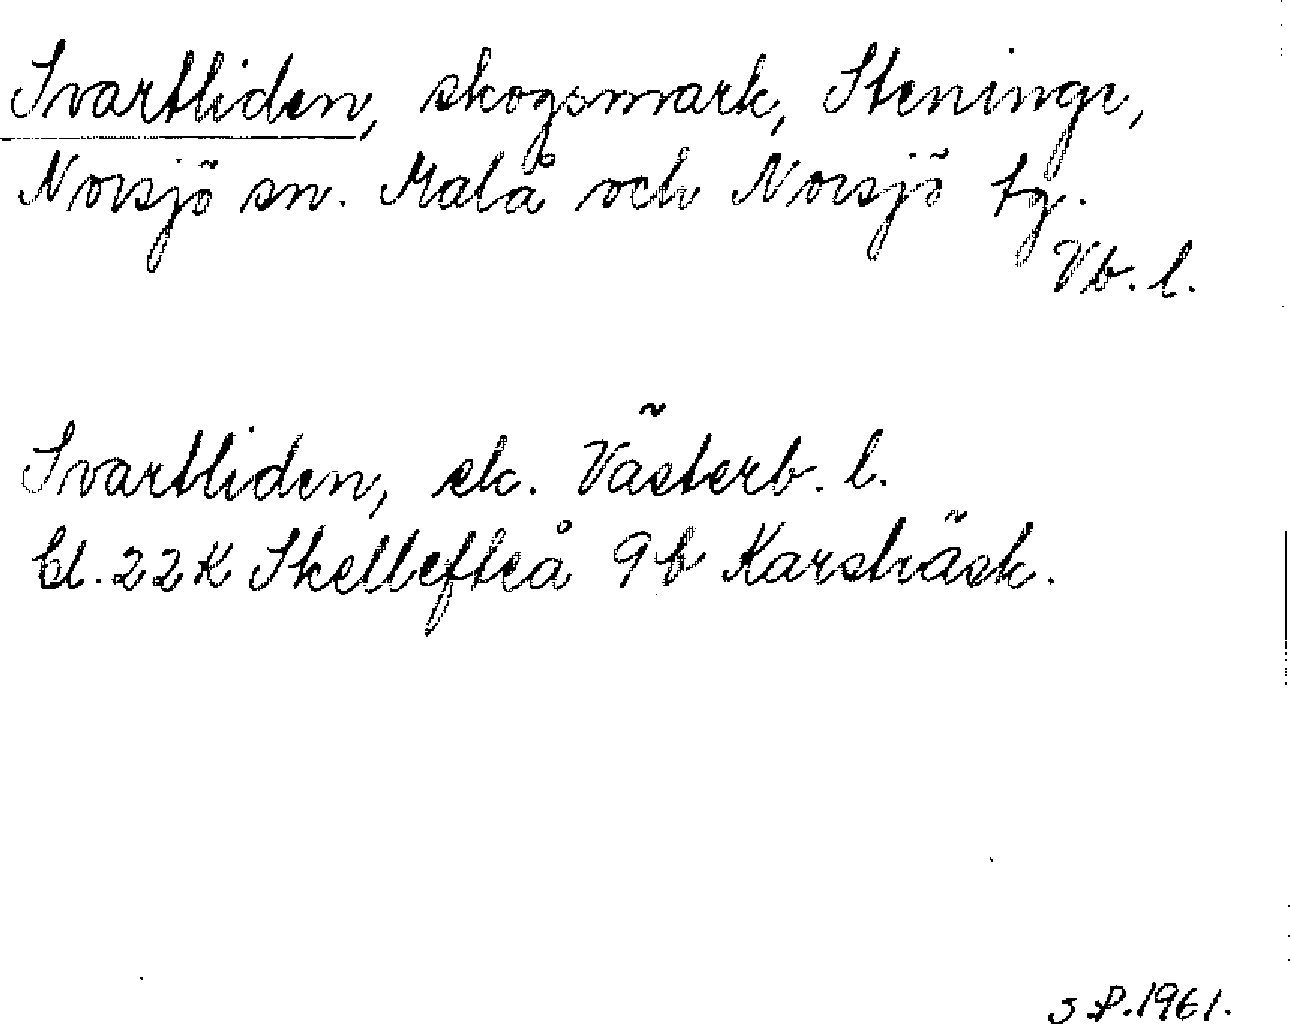 Svartliden, skogsmark, Steninge,
Norsjö sn. Malå och Norsjö tg.
Vb. l.
Svartliden, sk. Västerb. l.
bl. 22K Skellefteå 9b Karsträsk.
S.P. 1961.